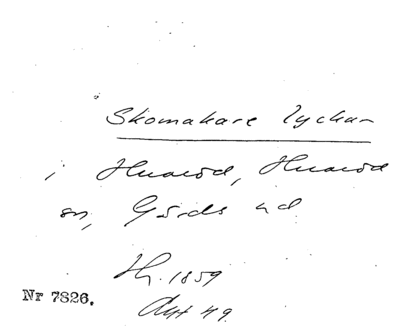 Skomakare lyckan
i Huaröd, Huaröd
sn, Gärds hd
Hy. 1859
Akt 49.
Nr 7826.